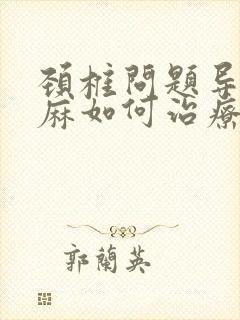 頚椎問題导
麻如何治療
郭蘭英